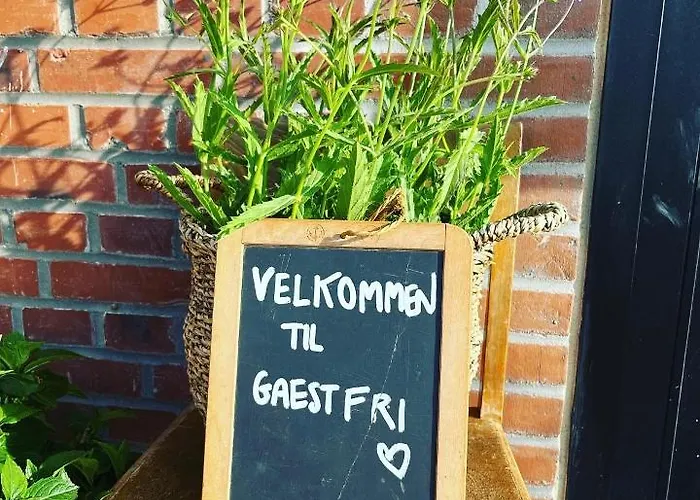 VELKOMMEN
TIL
GAESTFRI